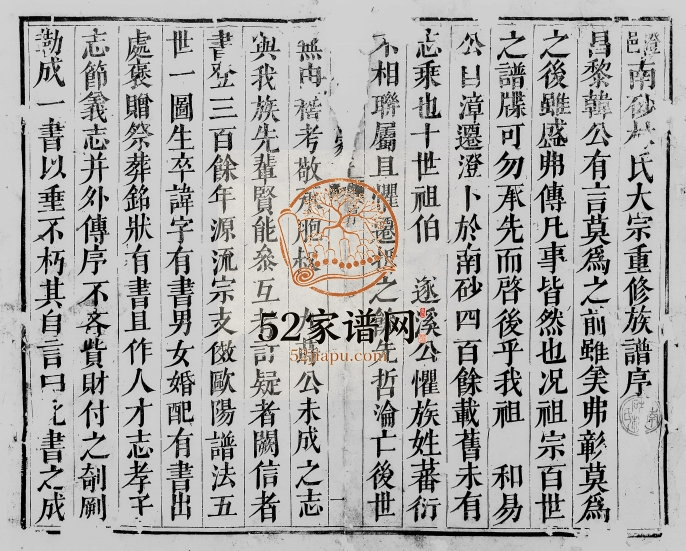 澄邑南砂氏大宗重修族譜序
昌黎韓公有言莫為之前雖美弗彰莫為
之後雖盛弗傳凡事皆然也况祖宗百世
之譜牒可勿承先而啓後乎我祖 和易
公自漳遷澄卜於南砂四百餘載舊未有
志乘也十世祖伯 遂溪公懼族姓蕃衍
不相聯屬且懼遷之先哲淪亡後世
無由稽考敬公未成之志
與我族先輩賢能叅互考訂疑者闕信者
書五三百餘年源流宗支倣歐陽譜法五
世一圖生卒諱字有書男女婚配有書出
處褒贈祭葬銘狀有書且作人才志孝子
志節義志并外傳序不吝費財付之剞劂
勒成一書以垂不朽其自言曰是書之成
52家谱网
52jiapu.com